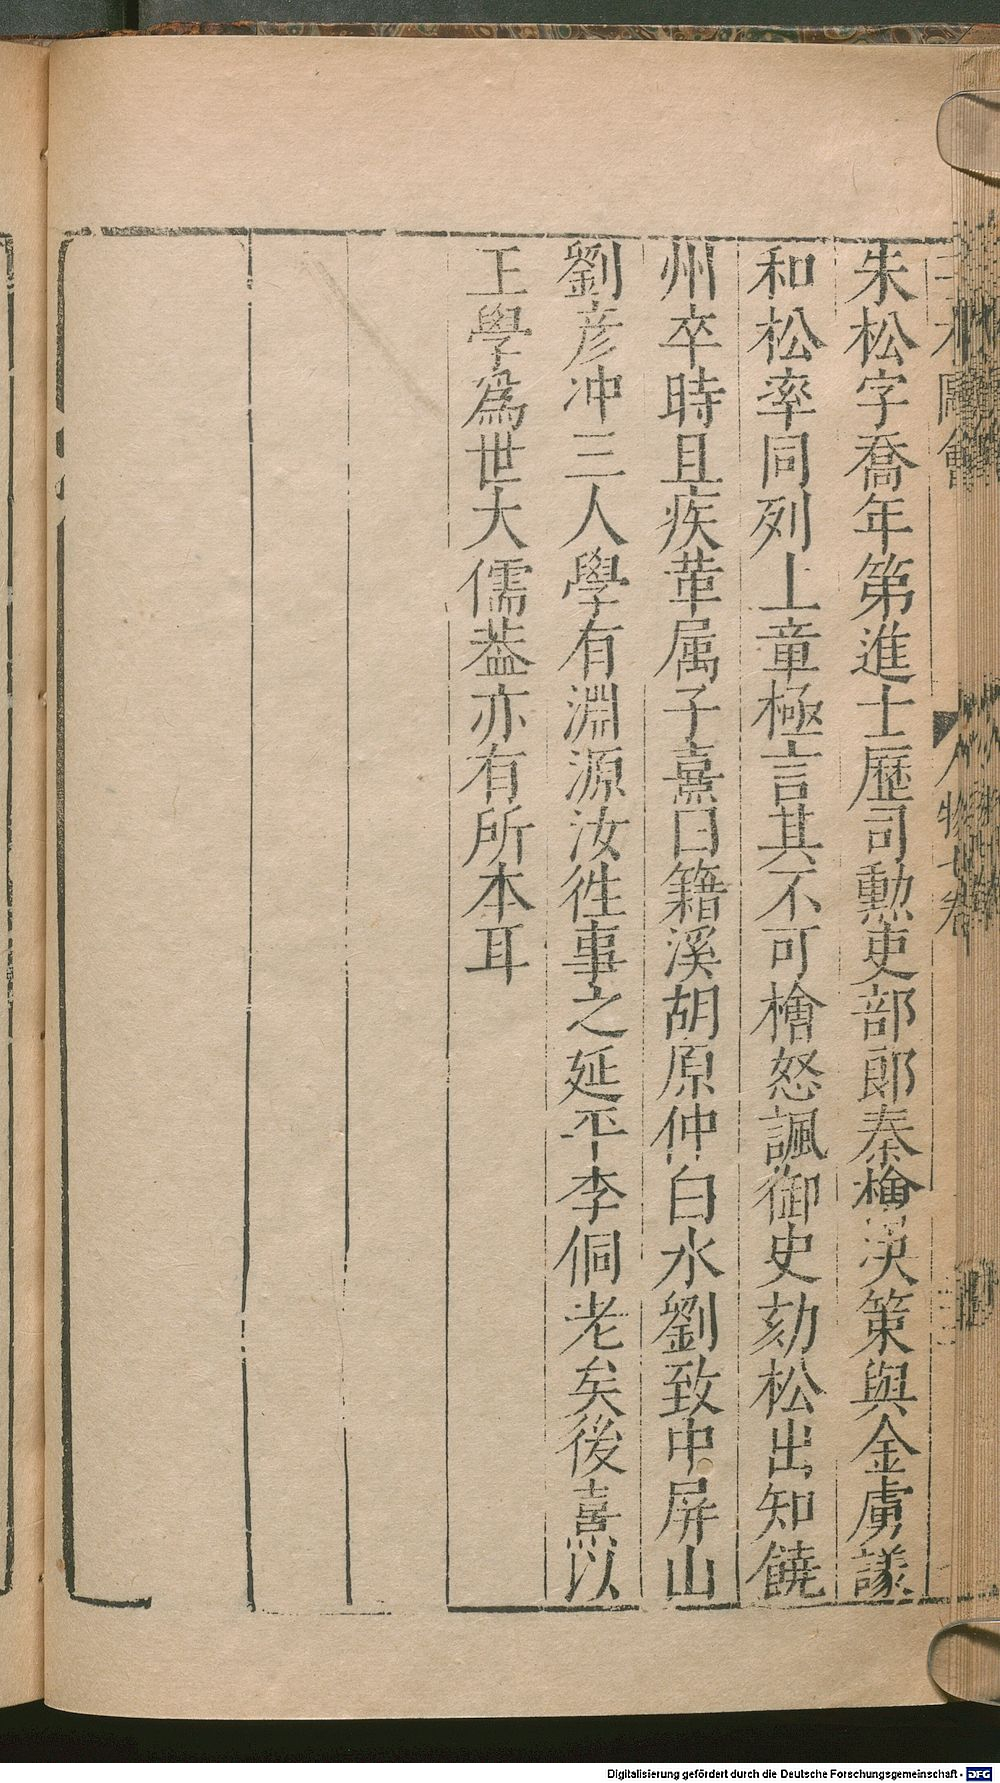 三才圖會
人物七卷
朱松字喬年第進士歷司勲吏部郎秦檜决策與金虜議
和松率同列上章極言其不可檜怒諷御史劾松出知饒
州卒時且疾革属子熹曰籍溪胡原仲白水劉致中屏山
劉彦冲三人學有淵源汝徃事之延平李侗老矣後熹以
正學為世大儒葢亦有所本耳
Digitalisierung gefördert durch die Deutsche Forschungsgemeinschaft - DFG